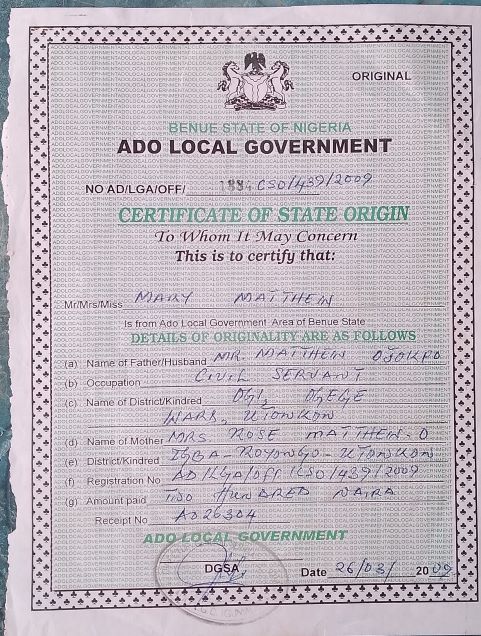 ORIGINAL
BENUE STATE OF NIGERIA
ADO LOCAL GOVERNMENT
NO AD/LGA/OFF/ 1884 CSO/439/2009
CERTIFICATE OF STATE ORIGIN
To Whom It May Concern
This is to certify that:
Mr/Mrs/Miss MARY MATTHEW
Is from Ado Local Government Area of Benue State
DETAILS OF ORIGINALITY ARE AS FOLLOWS
(a) Name of Father/Husband MR. MATTHEW OJOKPO
(b) Occupation CIVIL SERVANT
(c) Name of District/Kindred OGI, OGEGE
WARD, UTONKON
(d) Name of Mother MRS ROSE MATTHEW. O
(e) District/Kindred IGBA - ROYONGO - UTONKON
(f) Registration No AD/LGA/OFF/CSO/439/2009
(g) Amount paid TWO HUNDRED NAIRA
Receipt No AD26304
ADO LOCAL GOVERNMENT
DGSA
Date 26/03/ 2009